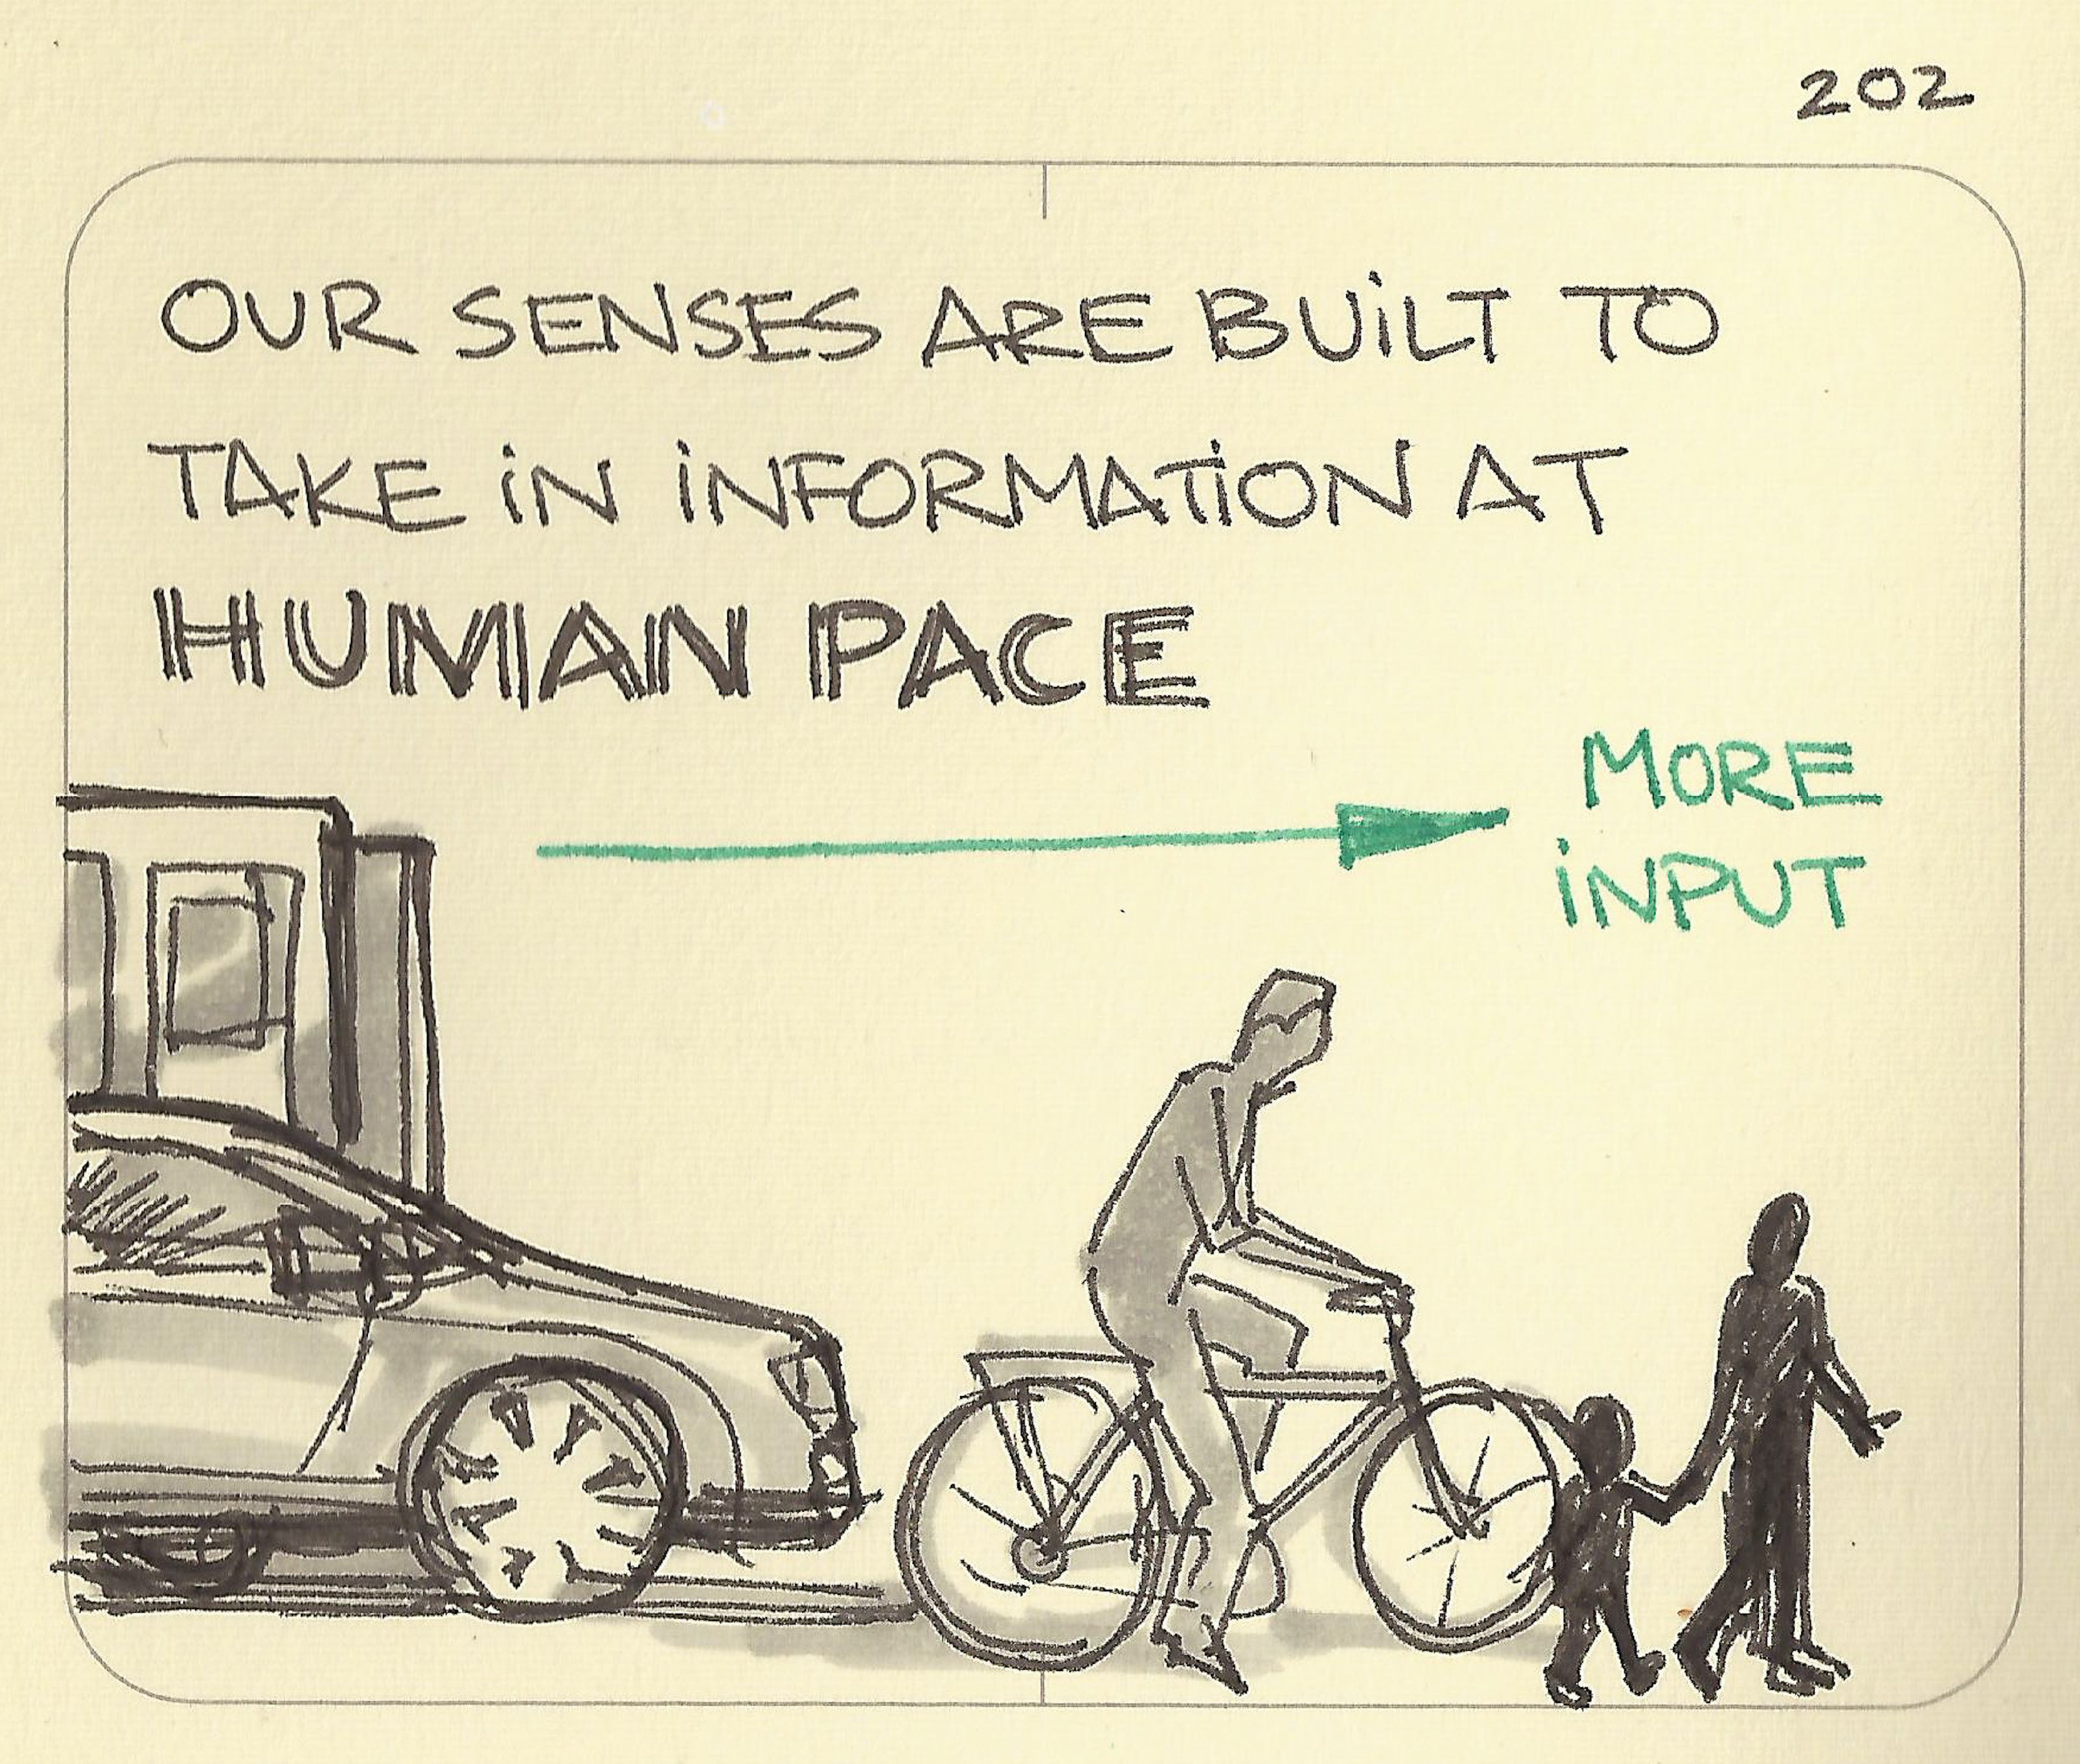 202
OUR SENSES ARE BUiLT TO
TAKE iN iNFORMATiON AT
HUMAN PACE
MORE
iNPUT